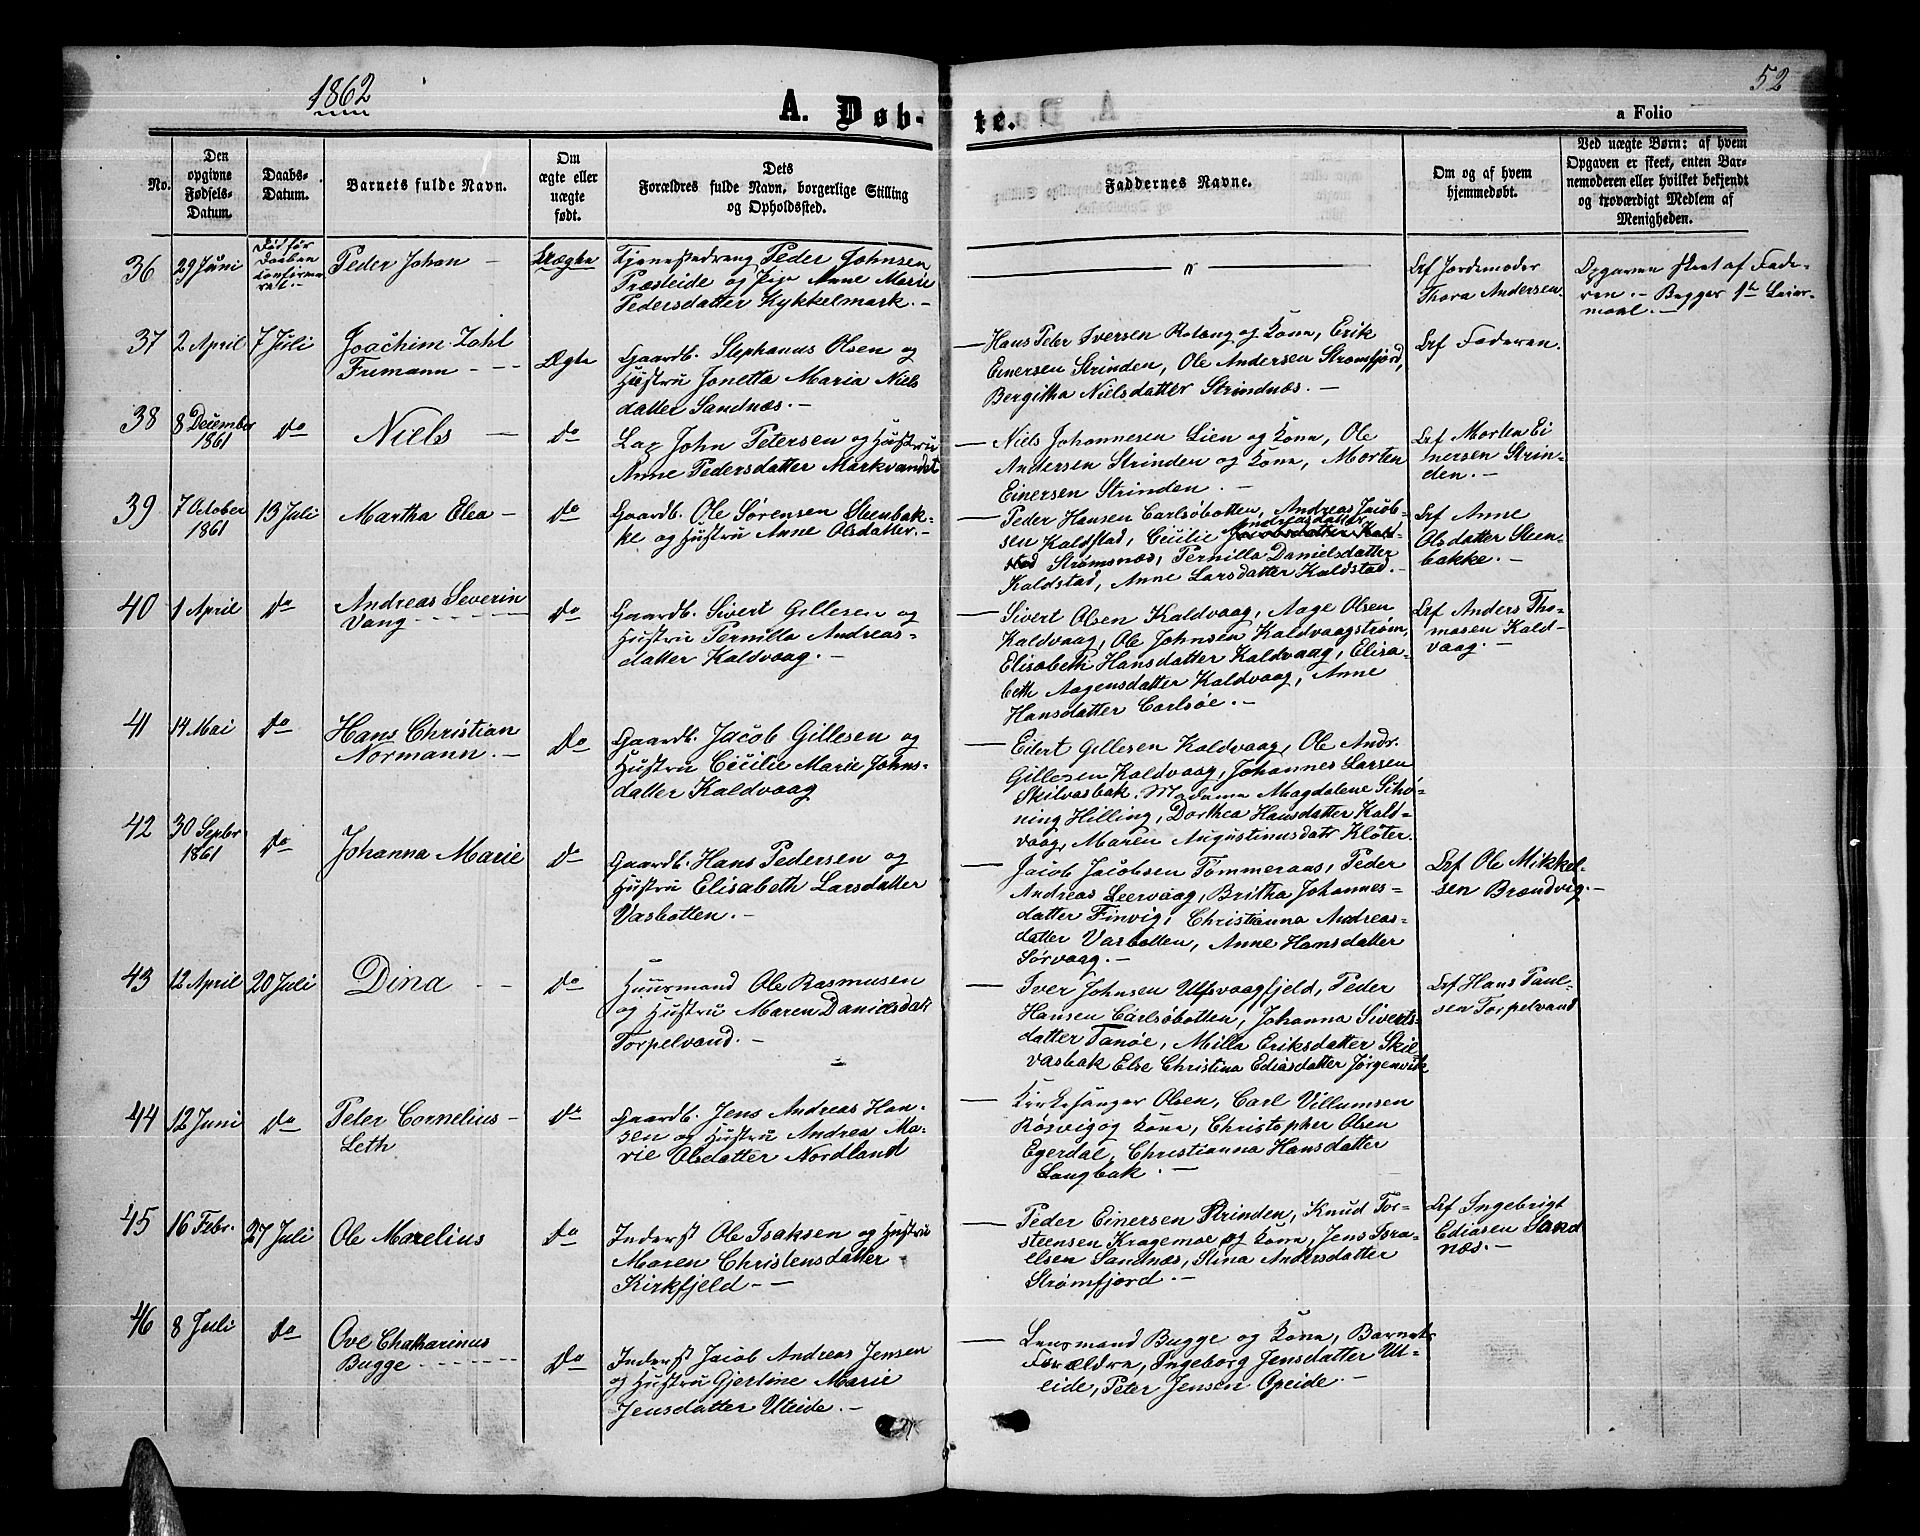 1862
52
A. Døb-te.
a Folio
No.
Den
opgivne
Fødsels-
Datum.
Daabs-
Datum.
Barnets fulde Navn.
Om
ægte eller
uægte
født.
Dets
Forældres fulde Navn, borgerlige Stilling
og Opholdssted.
Faddernes Navne.
Om og af hvem
hjemmedøbt.
Ved uægte Børn: af hvem
Opgaven er skeet, enten Bar-
nemoderen eller hvilket bekjendt
og troværdigt Medlem af
Menigheden.
36
29 Juni
Død før
Daaben
Confirme
ret. -
Peder Johan -
Uægte
Tjenestedreng Peder Johnsen
Præsteide og Pige Anne Marie
Pedersdatter Kykkelmark. -
"
Lrf Jordemoder
Thora Andersen.
Opgaven skeet af Fade-
ren. - Begges 1te Leier-
maal. -
37
2 April
7 Juli
Joachim Zahl
Fremann - - -
Ægte
Gaardb. Stephanus Olsen og
Hustru Jonetta Maria Niels
datter Sandnæs. -
- Hans Peter Iversen Rotang og Kone, Erik
Einersen Strinden, Ole Andersen Strømfjord,
Bergitha Nielsdatter Strindnæs. -
Lrf Faderen.
38
8 December
1861
Do
Niels -
Do
Lap John Petersen og Hustru
Anne Pedersdatter Markvandet
- Niels Johannesen Lien og Kone, Ole
Andersen Strinden og Kone, Morten
Einersen Strinden. -
Lrf Morten Ei
nersen Strin-
den. -
39
7 October
1861
13 Juli
Martha Elea -
Do
Gaardb. Ole Sørensen Steenbak-
ke og Hustru Anne Olsdatter. -
- Peder Hansen Carlsøbotten, Andreas Jacob-
sen Kaldstad, Cecilie Andreasdatter
Strømsnæs, Pernilla Danielsdatter
Kaldstad, Anne Larsdatter Kaldstad. -
Lrf Anne
Olsdatter Steen-
bakke. -
40
1 April
Do
Andreas Severin
Vang - - - - -
Do
Gaardb. Sivert Gillesen og
Hustru Pernilla Andreas-
datter Kaldvaag. -
- Sivert Olsen Kaldvaag, Aage Olsen
Kaldvaag, Ole Johnsen Kaldvaagstrøm,
Elisabeth Hansdatter Kaldvaag, Elisa-
beth Aagensdatter Kaldvaag, Anne
Hansdatter Carlsøe. -
Lrf Anders Tho-
masen Kald-
vaag. -
41
14 Mai
Do
Hans Christian
Normann. -
Do
Gaardb. Jacob Gillesen og
Hustru Cecilie Marie Johns-
datter Kaldvaag
- Eilert Gillesen Kaldvaag, Ole Andr.
Gillesen Kaldvaag, Johannes Larsen
Skilvasbak, Madame Magdalene Schø-
ning Hilling, Dorthea Hansdatter Kald-
vaag, Maren Augustinusdatr Kløter.
42
30 Septbr
1861
Do
Johanna Marie
Do
Gaardb. Hans Pedersen og
Hustru Elisabeth Larsdatter
Vasbotten. -
- Jacob Jacobsen Tømmeraas, Peder
Andreas Leervaag, Britha Johannes-
datter Finvig, Christianna Andreas-
datter Vasbotten, Anne Hansdatter
Sørvaag. -
Lrf Ole Mikkel-
sen Brandvig. -
43
12 April
20 Juli
Dina - -
Do
Huusmand Ole Rasmusen
og Hustru Maren Danielsdatr
Torpelvand. -
- Iver Johnsen Ulfsvaagfjeld, Peder
Hansen Carlsøbotten, Johanna Siverts-
datter Tanøe, Milla Eriksdatter Skil
vasbak Else Christina Ediasdatter Jørgenvik
Lrf Hans Paul-
sen Torpelvand
44
12 Juni
Do
Peter Cornelius -
Leth
Do
Gaardb. Jens Andreas Han-
sen og Hustru Andrea Ma-
rie Olsdatter Nordland
- Kirkesanger Olsen, Carl Villumsen
Røsvig og Kone, Christopher Olsen
Egerdal, Christianna Hansdatter
Langbak. -
45
16 Febr.
27 Juli
Ole Marelius
Do
Inderst Ole Isaksen og Hustru
Maren Christensdatter
Kirkfjeld - -
- Peder Einersen Strinden, Knud Tor-
steensen Kragemoe og Kone, Jens Isra-
elsen Sandnæs, Stina Andersdatter
Strømfjord. -
Lrf Ingebrigt
Ediasen Sand
næs. -
46
8 Juli
Do
Ove Chatharinus
Bugge - - - - -
Do
Inderst Jacob Andreas Jensen
og Hustru Gjertine Marie
Jensdatter Uteide. -
- Lensmand Bugge og Kone, Barnets
Forældre, Ingeborg Jensdatter Ut-
eide, Peter Jensen Opeide. -